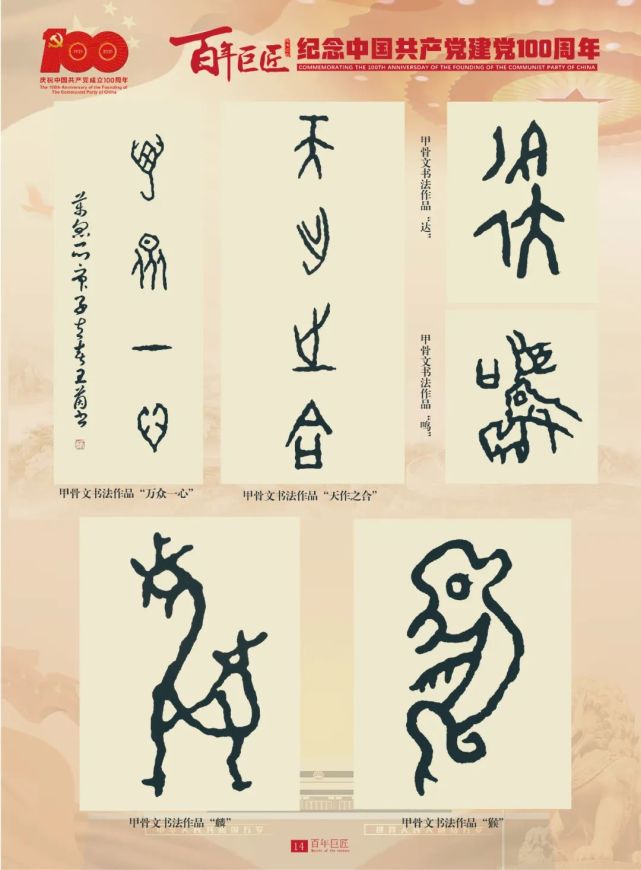 100
1921
2021
庆祝中国共产党成立100周年
The 100th Anniversary of the Founding of
The Communist Party of China
百年巨匠
纪念中国共产党建党100周年
COMMEMORATING THE 100TH ANNIVERSARY OF THE FOUNDING OF THE COMMUNIST PARTY OF CHINA
万众一心
甲骨文书法作品“万众一心”
天作之合
甲骨文书法作品“天作之合”
甲骨文书法作品“达”
甲骨文书法作品“鸣”
甲骨文书法作品“麟”
甲骨文书法作品“猴”
14 百年巨匠